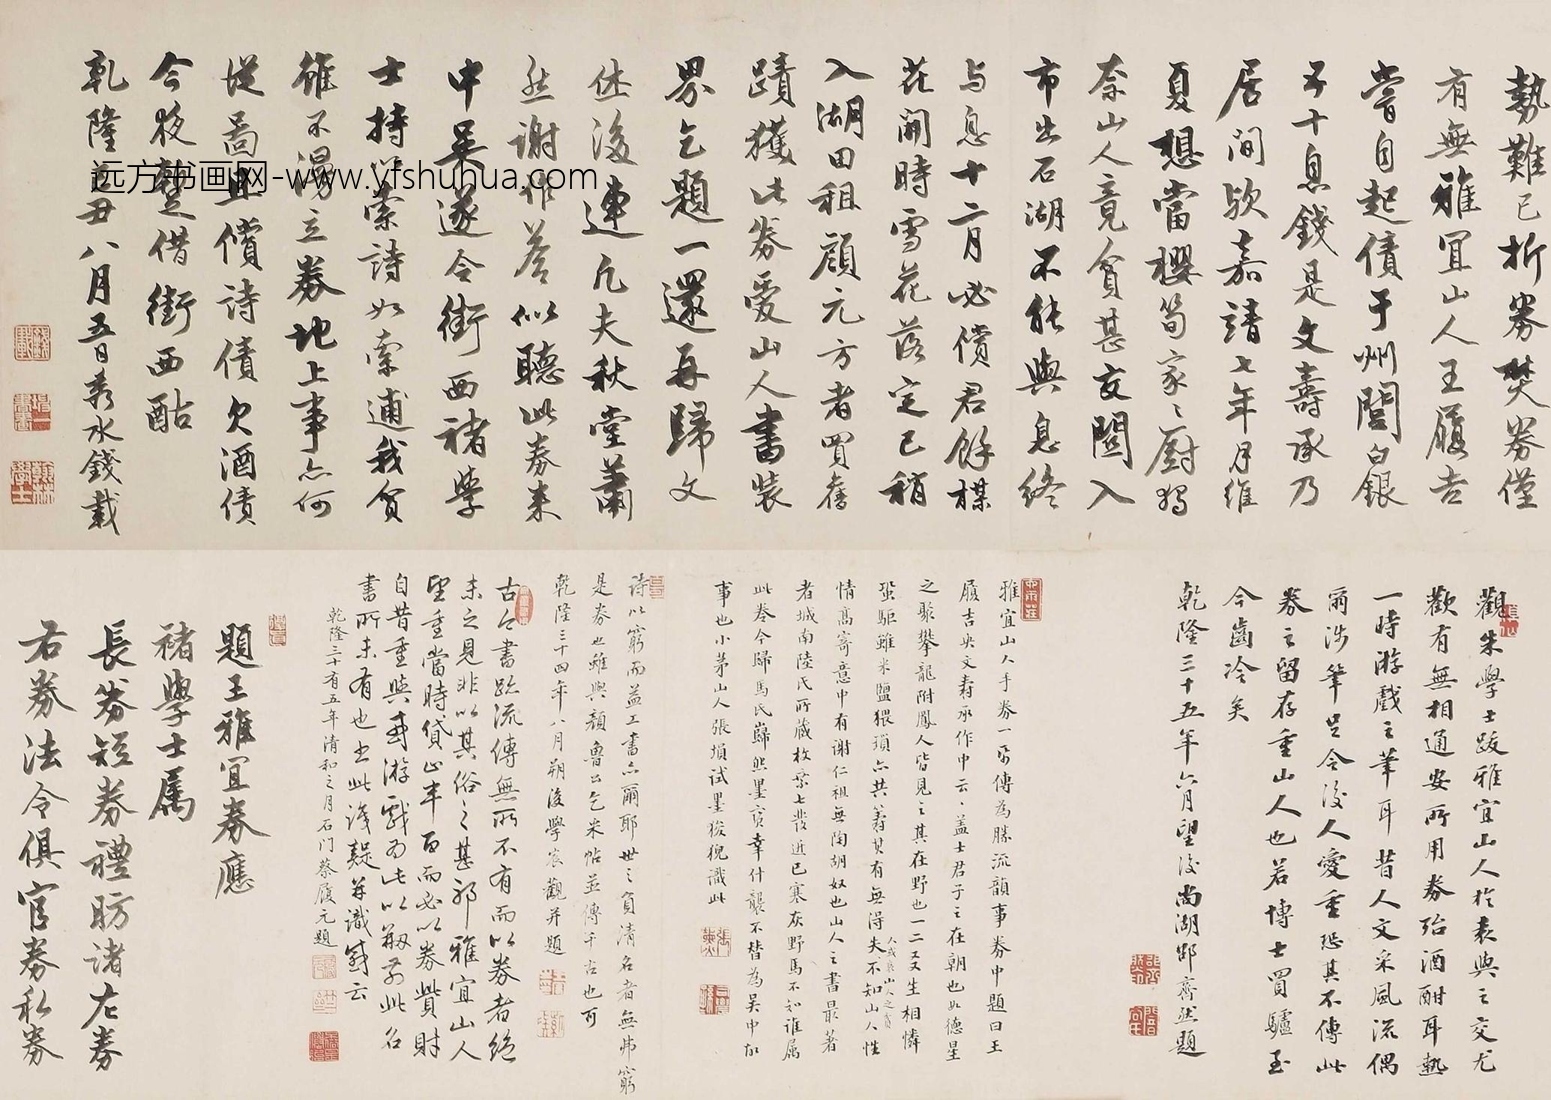 勢難已折券焚券僅
有無雅宜山人王履吉
嘗自起債于州閭白銀
五十息錢是文壽承乃
居間欵嘉靖七年月維
夏想當櫻筍家〻廚獨
奈山人竟貧甚交關入
市出石湖不能與息終
与息十二月必償君餘樣
花開時雪花落定已稍
入湖田租顧元方者買舊
蹟獲此券愛山人書裝
界乞題一還再歸文
休後連凡夫秋堂蕭
然謝作答似聽此券來
中吳遂令街西褚學
士持以索詩如索逋我貧
雖不獲立券地上事亦何
從啚且償詩債欠酒債
今夜楚借街西酤
乾隆己丑八月五日秀水錢載
远方书画网-www.yfshuhua.com
觀朱學士跋雅宜山人於袁與之交尤
歡有無相通安所用券殆酒酣耳熱
一時游戲之筆耳昔人文采風流偶
爾涉筆足令後人愛重恐其不傳此
券之留存重山人也若博士買驢至
今齒冷矣
乾隆三十五年六月望後尚湖邵齊然題
雅宜山人手券一帋傳為勝流韻事券中題曰王
履吉央文壽承作中云〻蓋士君子之在朝也如德星
之聚攀龍附鳳人皆見之其在野也一二又生相憐
蛩駏雖米鹽猥瑣亦共籌其有無得失不知山人性
情高寄意中有謝仁祖無陶胡奴也山人之書最著
者城南陸氏所藏枚乘七發近已寒灰野馬不知誰屬
此券今歸馬氏巋然墨寶幸什襲不啻為吳中故
事也小茅山人張塤試墨猊識此
詩以窮而益工書亦爾耶世之貧清名者無弗窮
是券也雖與顏魯公乞米帖並傳千古也可
乾隆三十四年八月朔後學宸觀并題
古今書跡流傳無所不有而以券者絕
未之見非以其俗之甚邪雅宜山人
望重當時貸止半百而必以券貲財
自昔重與南游戲為此以掰前此名
書所未有也書此識疑并識感云
乾隆三十有五年清和之月石門蔡履元題
題王雅宜券應
褚學士屬
長券短券禮昉諸左券
右券法令俱官券私券